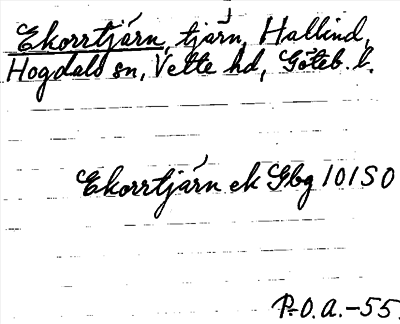 Ekorrtjärn, tjärn, Hallind,
Hogdals sn, Vette hd, Göteb. l.
Ekorrtjärn ek Gbg 101 SO
P.O.A.-55.